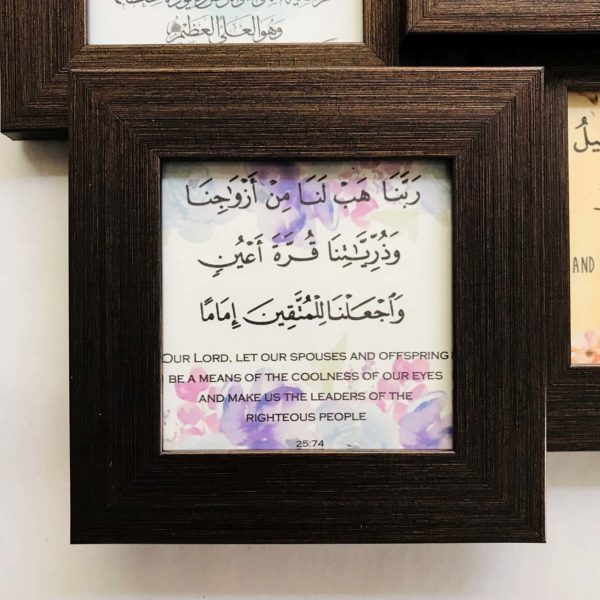 وهو العلي العظيم
رَبَّنَا هَبْ لَنَا مِنْ أَزْوَاجِنَا
وَذُرِّيَّاتِنَا قُرَّةَ أَعْيُنٍ
وَٱجْعَلْنَا لِلْمُتَّقِينَ إِمَامًا
OUR LORD, LET OUR SPOUSES AND OFFSPRING
BE A MEANS OF THE COOLNESS OF OUR EYES
AND MAKE US THE LEADERS OF THE
RIGHTEOUS PEOPLE
25:74
AND